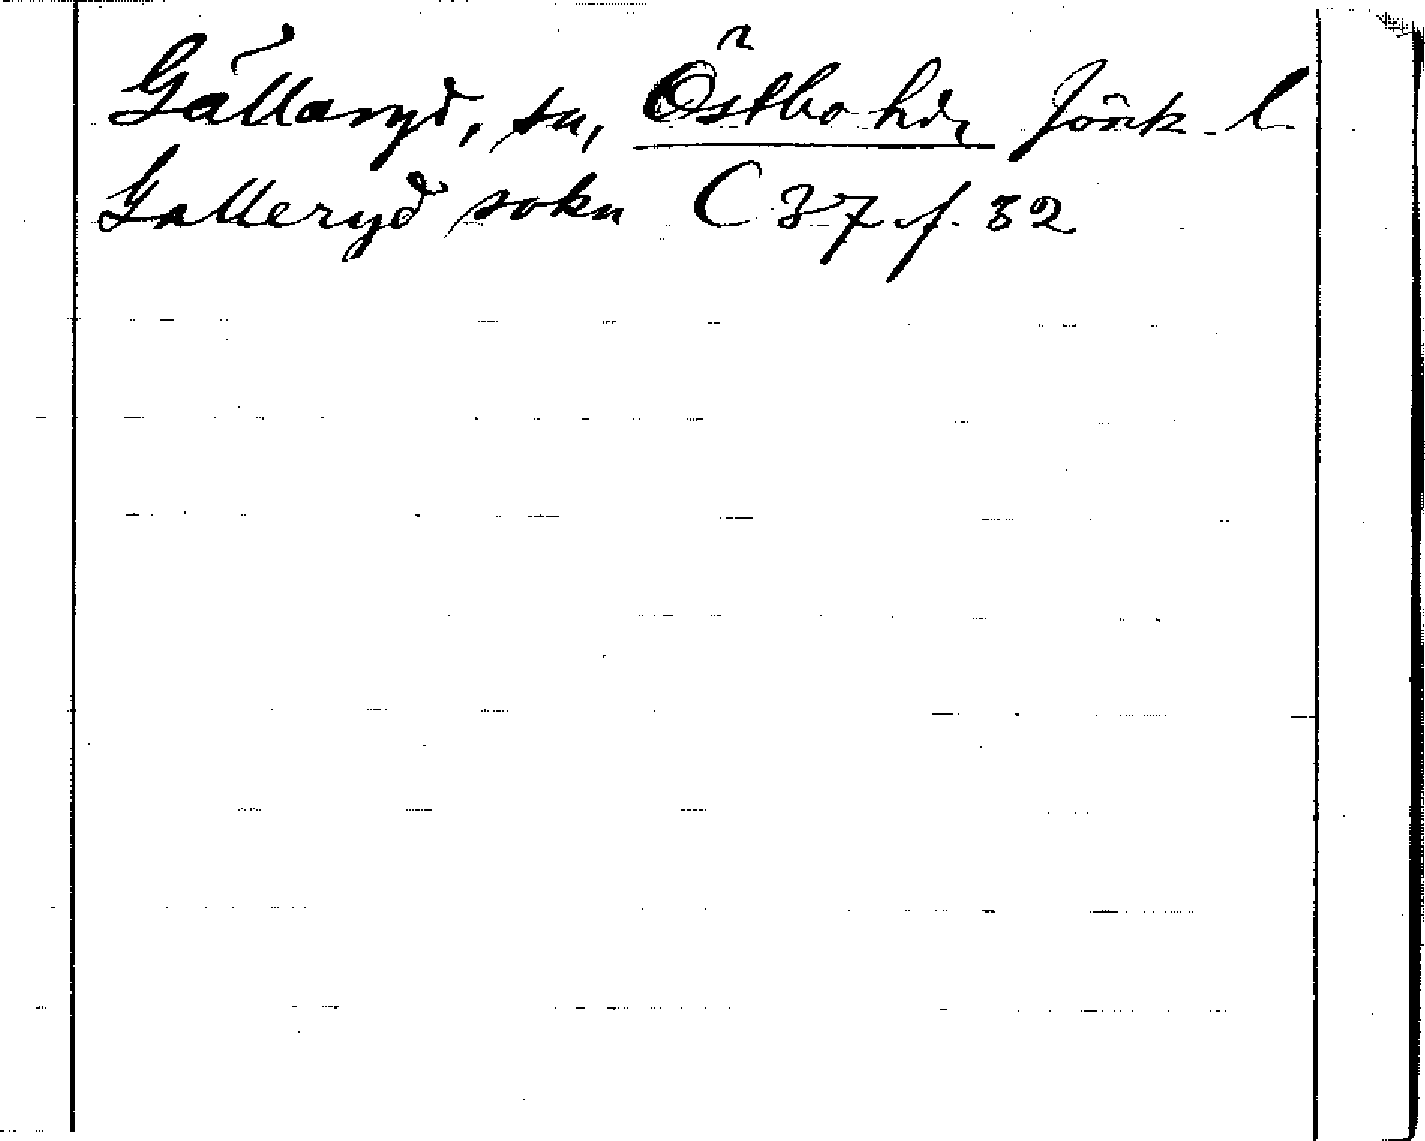 Gällaryd, sn, Östbo hd, Jönk. l
Galleryd sokn C 37 f. 32